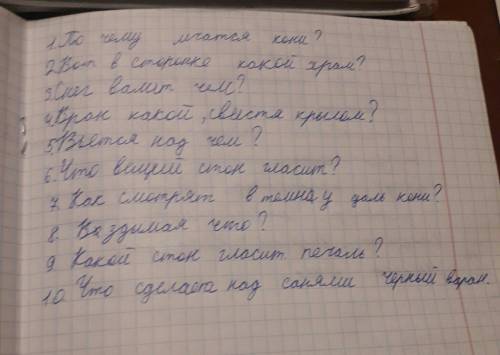 1. По чему мчатся кони?
2. Вот в сторонке какой храм?
3. Снег валит чем?
4. Вран какой, свистя крылом?
5. Вьётся над чем?
6. Что вещий стон гласит?
7. Как смотрят в темную даль кони?
8. Воздымая что?
9. Какой стон гласит печаль?
10. Что сделает над санями черный вран.